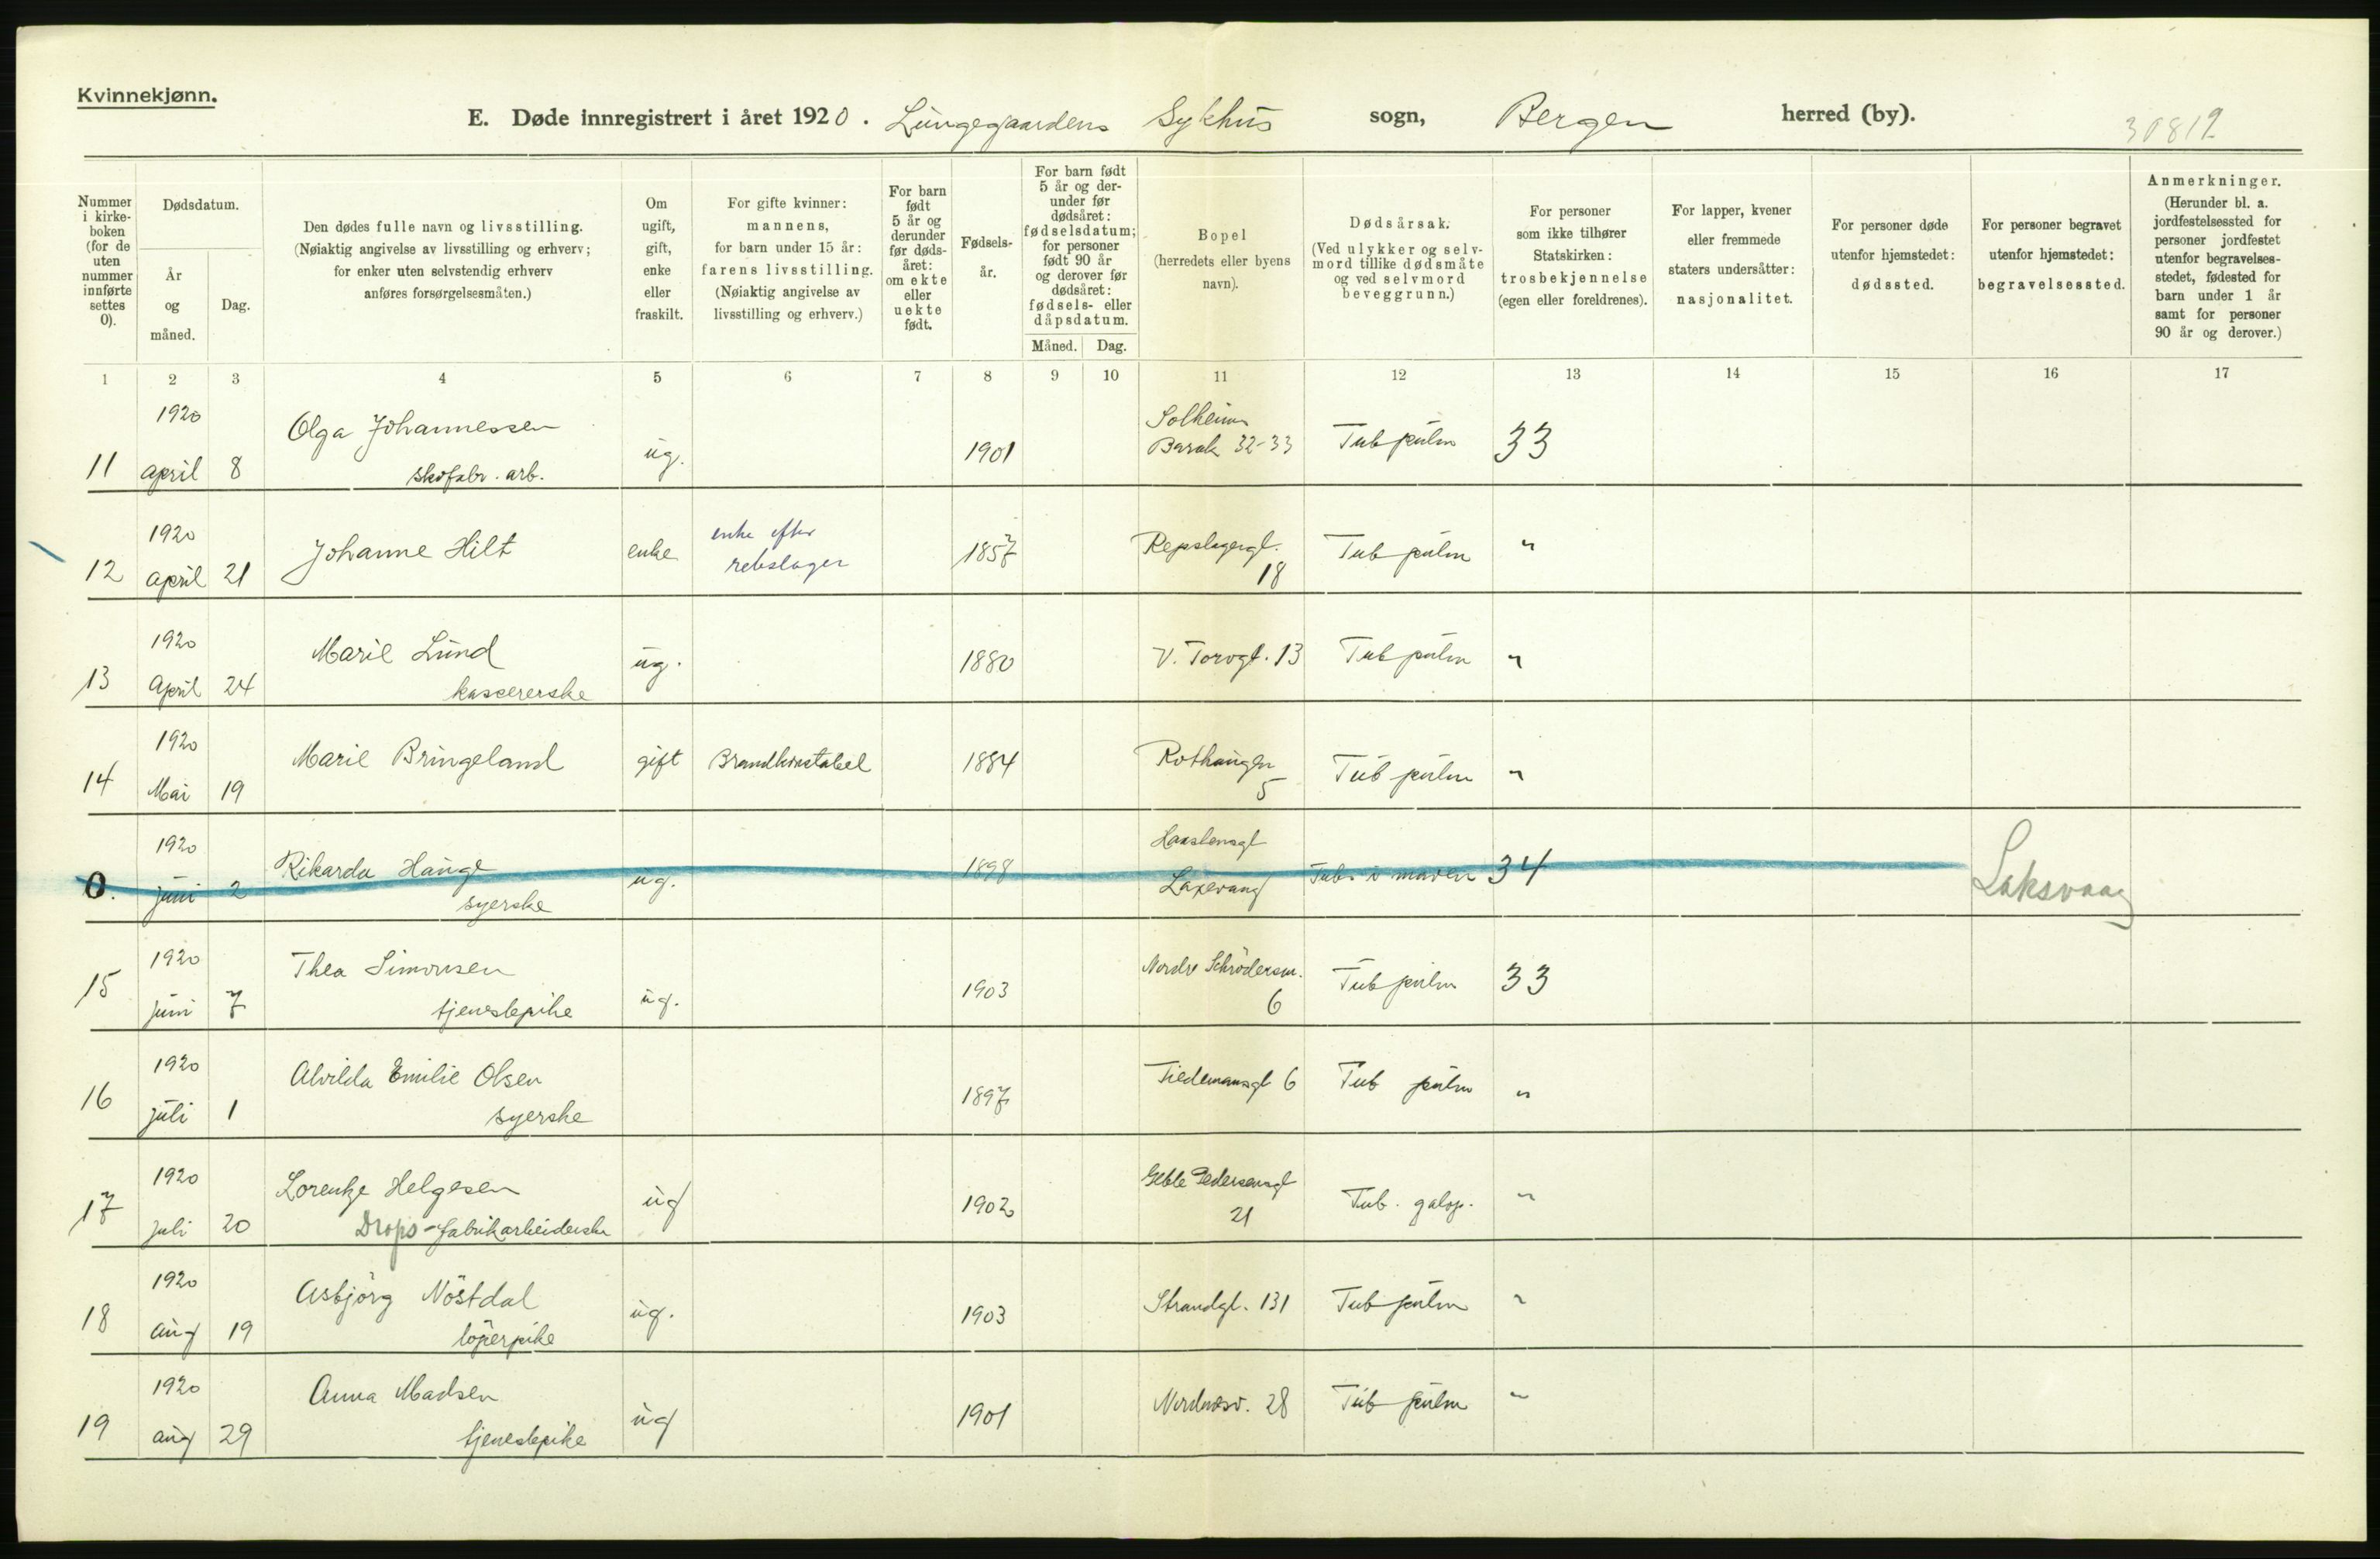 Kvinnekjønn.
E. Døde innregistrert i året 1920. Lungegaardens Sykhus sogn, Bergen herred (by). 30812
Nummer i kirke-boken (for de uten nummer innførte settes 0).
Dødsdatum.
År og måned.
Dag.
Den dødes fulle navn og livsstilling.
(Nøiaktig angivelse av livsstilling og erhverv;
for enker uten selvstendig erhverv
anføres forsørgelsesmåten.)
Om ugift, gift, enke eller fraskilt.
For gifte kvinner:
mannens,
for barn under 15 år:
farens livsstilling.
(Nøiaktig angivelse av
livsstilling og erhverv.)
For barn født 5 år og derunder før døds-året: om ekte eller uekte født.
Fødsels-år.
For barn født 5 år og der-under før dødsåret: fødselsdatum; for personer født 90 år og derover før dødsåret: fødsels- eller dåpsdatum.
Måned. Dag.
Bopel
(herredets eller byens
navn).
Dødsårsak.
(Ved ulykker og selv-
mord tillike dødsmåte
og ved selvmord
beveggrunn.)
For personer
som ikke tilhører
Statskirken:
trosbekjennelse
(egen eller foreldrenes).
For lapper, kvener
eller fremmede
staters undersåtter:
nasjonalitet.
For personer døde
utenfor hjemstedet:
dødssted.
For personer begravet
utenfor hjemstedet:
begravelsessted.
Anmerkninger.
(Herunder bl. a.
jordfestelsessted for
personer jordfestet
utenfor begravelses-
stedet, fødested for
barn under 1 år
samt for personer
90 år og derover.)
1 2 3 4 5 6 7 8 9 10 11 12 13 14 15 16 17
1920 Olga Johannessen Solheim
11 april 8 skofabr. arb. ug. 1901 Barak 32-33 Tub pulm 33
1920 Johanne Hilt enke enke efter 1857 Repslagergt. Tub pulm "
12 april 21 rebslager 18
1920 Marie Lund ug. 1880 V. Torvgt. 13 Tub pulm "
13 April 24 kassererske
1920 Marie Bringeland gift Brandkonstabel 1884 Rothaugen Tub pulm "
14 Mai 19 5
1920 Rikarda Hauge 1898
0. juni 2 syerske ug. Laxevaag Tub. i maven 34 Laksvaag
1920 Thea Simonsen Nordre Schrödersm.
15 juni 7 tjenestepike ug. 1903 6 Tub pulm 33
1920 Alvilda Emilie Olsen Tiedemansgt 6 Tub pulm "
16 juli 1 syerske 1897
1920 Lorentze Helgesen ug 1902 Geble Pedersensgt Tub. galop. "
17 juli 20 Drops-fabrikarbeiderske 21
1920 Asbjörg Nöstdal Strandgt. 131 Tub pulm "
18 aug 19 löperpike ug. 1903
1920 Anna Madsen Nordnesv. 28 Tub pulm "
19 aug 29 tjenestepike ug 1901